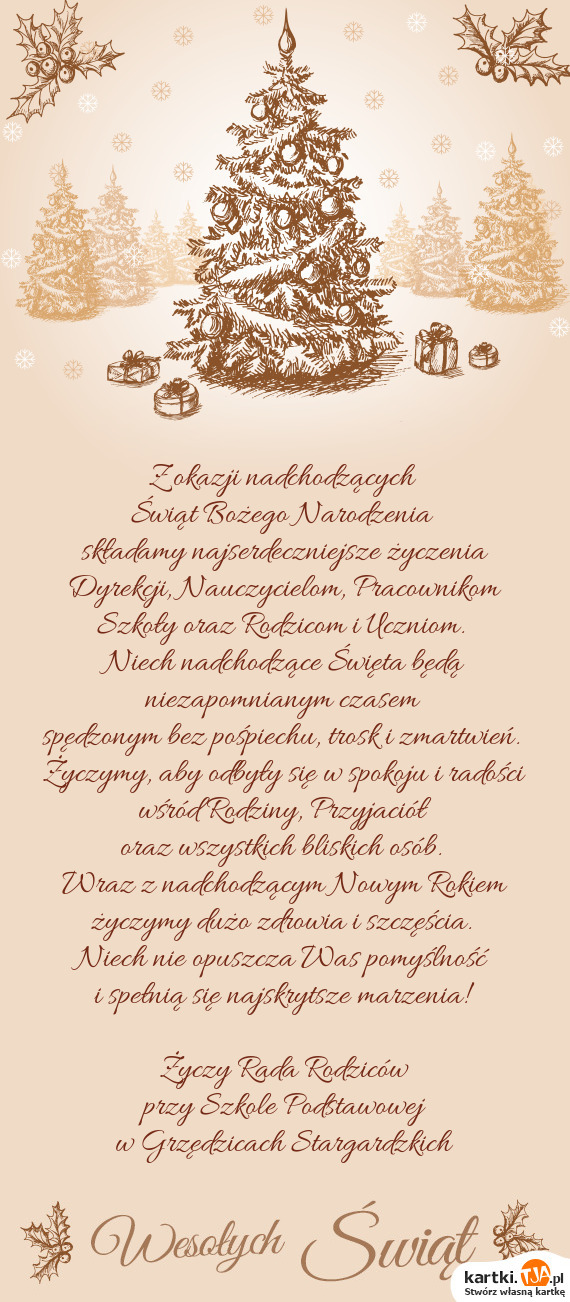 Z okazji nadchodzących
Świąt Bożego Narodzenia
składamy najserdeczniejsze życzenia
Dyrekcji, Nauczycielom, Pracownikom
Szkoły oraz Rodzicom i Uczniom.
Niech nadchodzące Święta będą
niezapomnianym czasem
spędzonym bez pośpiechu, trosk i zmartwień.
Życzymy, aby odbyły się w spokoju i radości
wśród Rodziny, Przyjaciół
oraz wszystkich bliskich osób.
Wraz z nadchodzącym Nowym Rokiem
życzymy dużo zdrowia i szczęścia.
Niech nie opuszcza Was pomyślność
i spełnią się najskrytsze marzenia!
Życzy Rada Rodziców
przy Szkole Podstawowej
w Grzędzicach Stargardzkich
Wesołych Świąt
kartki.TJA.pl
Stwórz własną kartkę